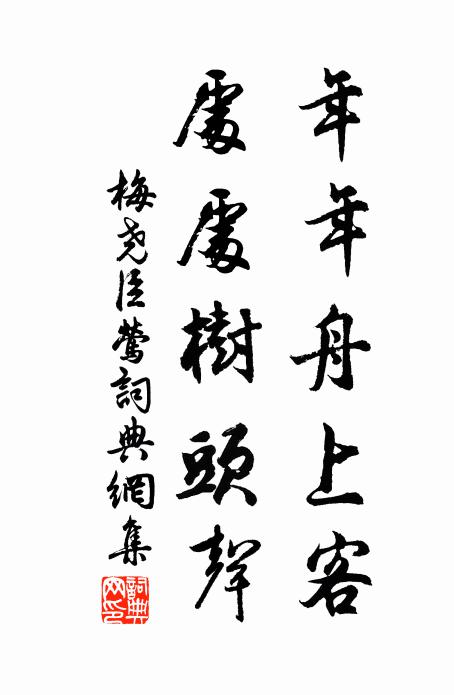 年年舟上客
處處樹頭聲
梅堯臣鶯詞典網集
詞典
网印